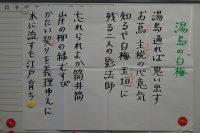 湯島の白梅
湯島通れば思い出す
お蔦主税の心意気
知るや白梅玉垣に
残る二人の影法師
忘れられよか筒井筒
岸の柳の縁むすび
かたい契りを義理ゆえに
水に流すも江戸育ち